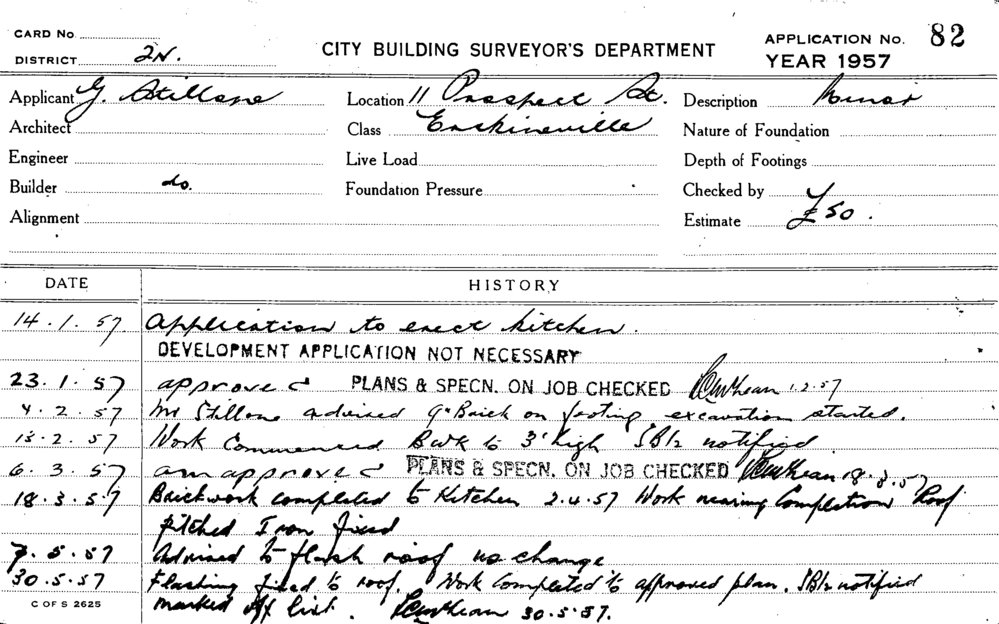 CARD No.
DISTRICT 2N.
CITY BUILDING SURVEYOR'S DEPARTMENT
APPLICATION No. 82
YEAR 1957
Applicant G. Stillone Location 11 Prospect St. Description Minor
Architect Class Erskineville Nature of Foundation
Engineer Live Load Depth of Footings
Builder do. Foundation Pressure Checked by
Alignment Estimate £50.
DATE HISTORY
14.1.57 Application to erect kitchen.
DEVELOPMENT APPLICATION NOT NECESSARY
23.1.57 approved PLANS & SPECN. ON JOB CHECKED 1.2.57
4.2.57 Mr Stillone advised 9" Brick on footing excavation started.
13.2.57 Work Commenced Bwk to 3' high notified
6.3.57 am approved PLANS & SPECN. ON JOB CHECKED 18.3.57
18.3.57 Brickwork completed to Kitchen 2.4.57 Work nearing Completion Roof
pitched Iron fixed
7.5.57 Advised to flash roof no change
30.5.57 Flashing fixed to roof. Work Completed to approved plan. notified
C OF S 2625
marked off list. 30.5.57.